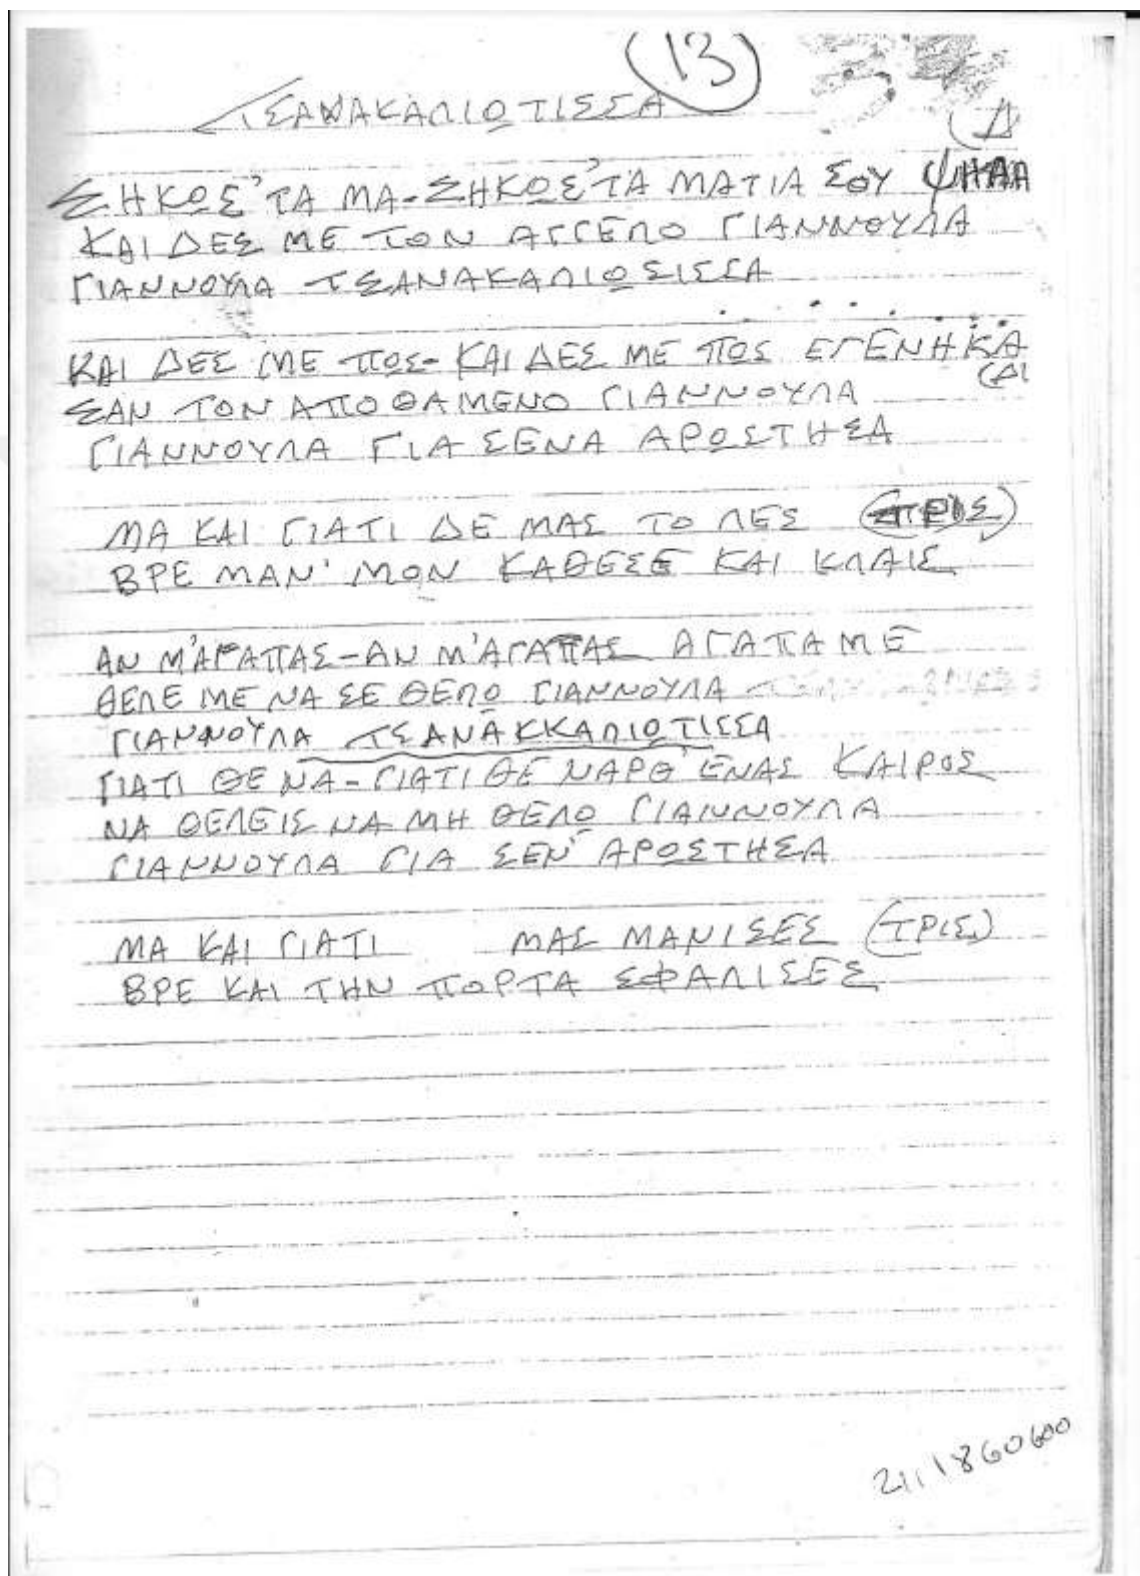 13
ΤΣΑΝΑΚΑΛΙΩΤΙΣΣΑ
Δ
ΣΗΚΩΣ' ΤΑ ΜΑ-ΣΗΚΩΣ' ΤΑ ΜΑΤΙΑ ΣΟΥ ΨΗΛΑ
ΚΑΙ ΔΕΣ ΜΕ ΤΟΝ ΑΓΓΕΛΟ ΓΙΑΝΝΟΥΛΑ
ΓΙΑΝΝΟΥΛΑ ΤΣΑΝΑΚΑΛΙΩΣΙΣΣΑ
ΚΑΙ ΔΕΣ ΜΕ ΠΩΣ-ΚΑΙ ΔΕΣ ΜΕ ΠΩΣ ΕΓΕΝΗΚΑ
ΣΑΝ ΤΟΝ ΑΠΟΘΑΜΕΝΟ ΓΙΑΝΝΟΥΛΑ
ΓΙΑΝΝΟΥΛΑ ΓΙΑ ΣΕΝΑ ΑΡΩΣΤΗΣΑ
ΜΑ ΚΑΙ ΓΙΑΤΙ ΔΕ ΜΑΣ ΤΟ ΛΕΣ (ΤΡΙΣ)
ΒΡΕ ΜΑΝ' ΜΟΝ ΚΑΘΕΣΕ ΚΑΙ ΚΛΑΙΣ
ΑΝ Μ'ΑΓΑΠΑΣ-ΑΝ Μ'ΑΓΑΠΑΣ ΑΓΑΠΑ ΜΕ
ΘΕΛΕ ΜΕ ΝΑ ΣΕ ΘΕΛΩ ΓΙΑΝΝΟΥΛΑ
ΓΙΑΝΝΟΥΛΑ ΤΣΑΝΑΚΚΑΛΙΩΤΙΣΣΑ
ΓΙΑΤΙ ΘΕ ΝΑ-ΓΙΑΤΙ ΘΕ ΝΑΡΘ' ΕΝΑΣ ΚΑΙΡΟΣ
ΝΑ ΘΕΛΕΙΣ ΝΑ ΜΗ ΘΕΛΩ ΓΙΑΝΝΟΥΛΑ
ΓΙΑΝΝΟΥΛΑ ΓΙΑ ΣΕΝ' ΑΡΩΣΤΗΣΑ
ΜΑ ΚΑΙ ΓΙΑΤΙ ΜΑΣ ΜΑΝΙΣΕΣ (ΤΡΙΣ)
ΒΡΕ ΚΑΙ ΤΗΝ ΠΟΡΤΑ ΣΦΑΛΙΣΕΣ